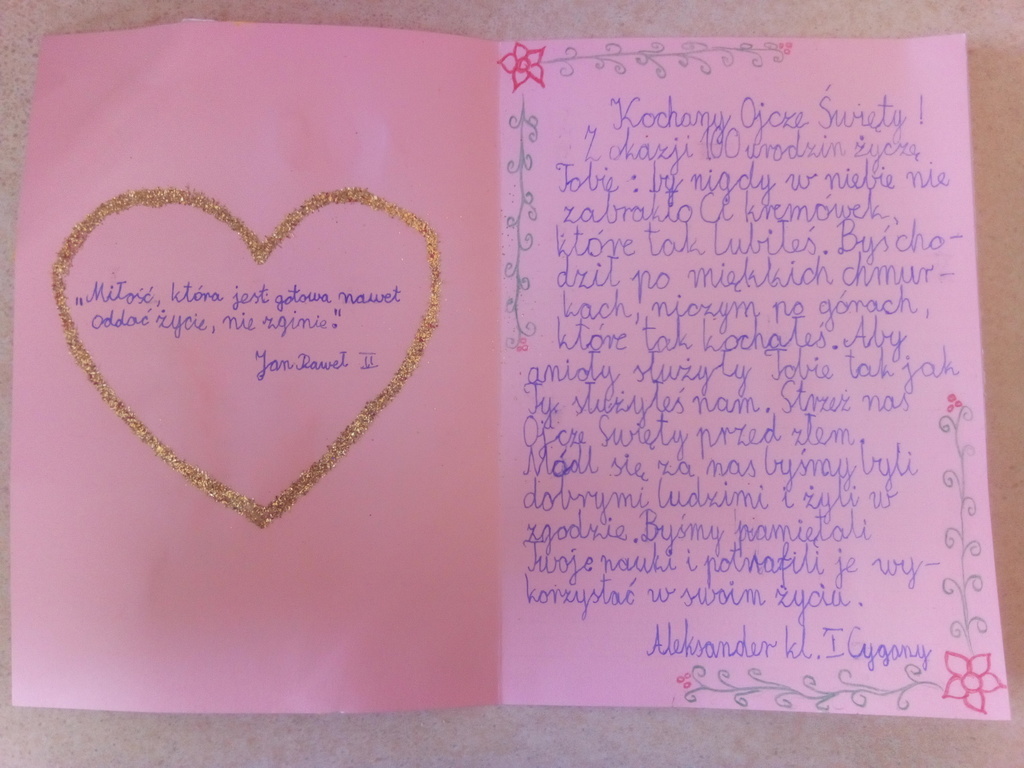 „Miłość, która jest gotowa nawet
oddać życie, nie zginie."
Jan Paweł II
Kochany Ojcze Święty!
Z okazji 100 urodzin życzę
Tobie: by nigdy w niebie nie
zabrakło Ci kremówek,
które tak lubiłeś. Byś cho-
dził po miękkich chmur-
kach, niczym po górach,
które tak kochałeś. Aby
anioły służyły Tobie tak jak
Ty służyłeś nam. Strzeż nas
Ojcze Święty przed złem.
Módl się za nas byśmy byli
dobrymi ludzimi i żyli w
zgodzie. Byśmy pamiętali
Twoje nauki i potrafili je wy-
korzystać w swoim życiu.
Aleksander kl. I Cygany